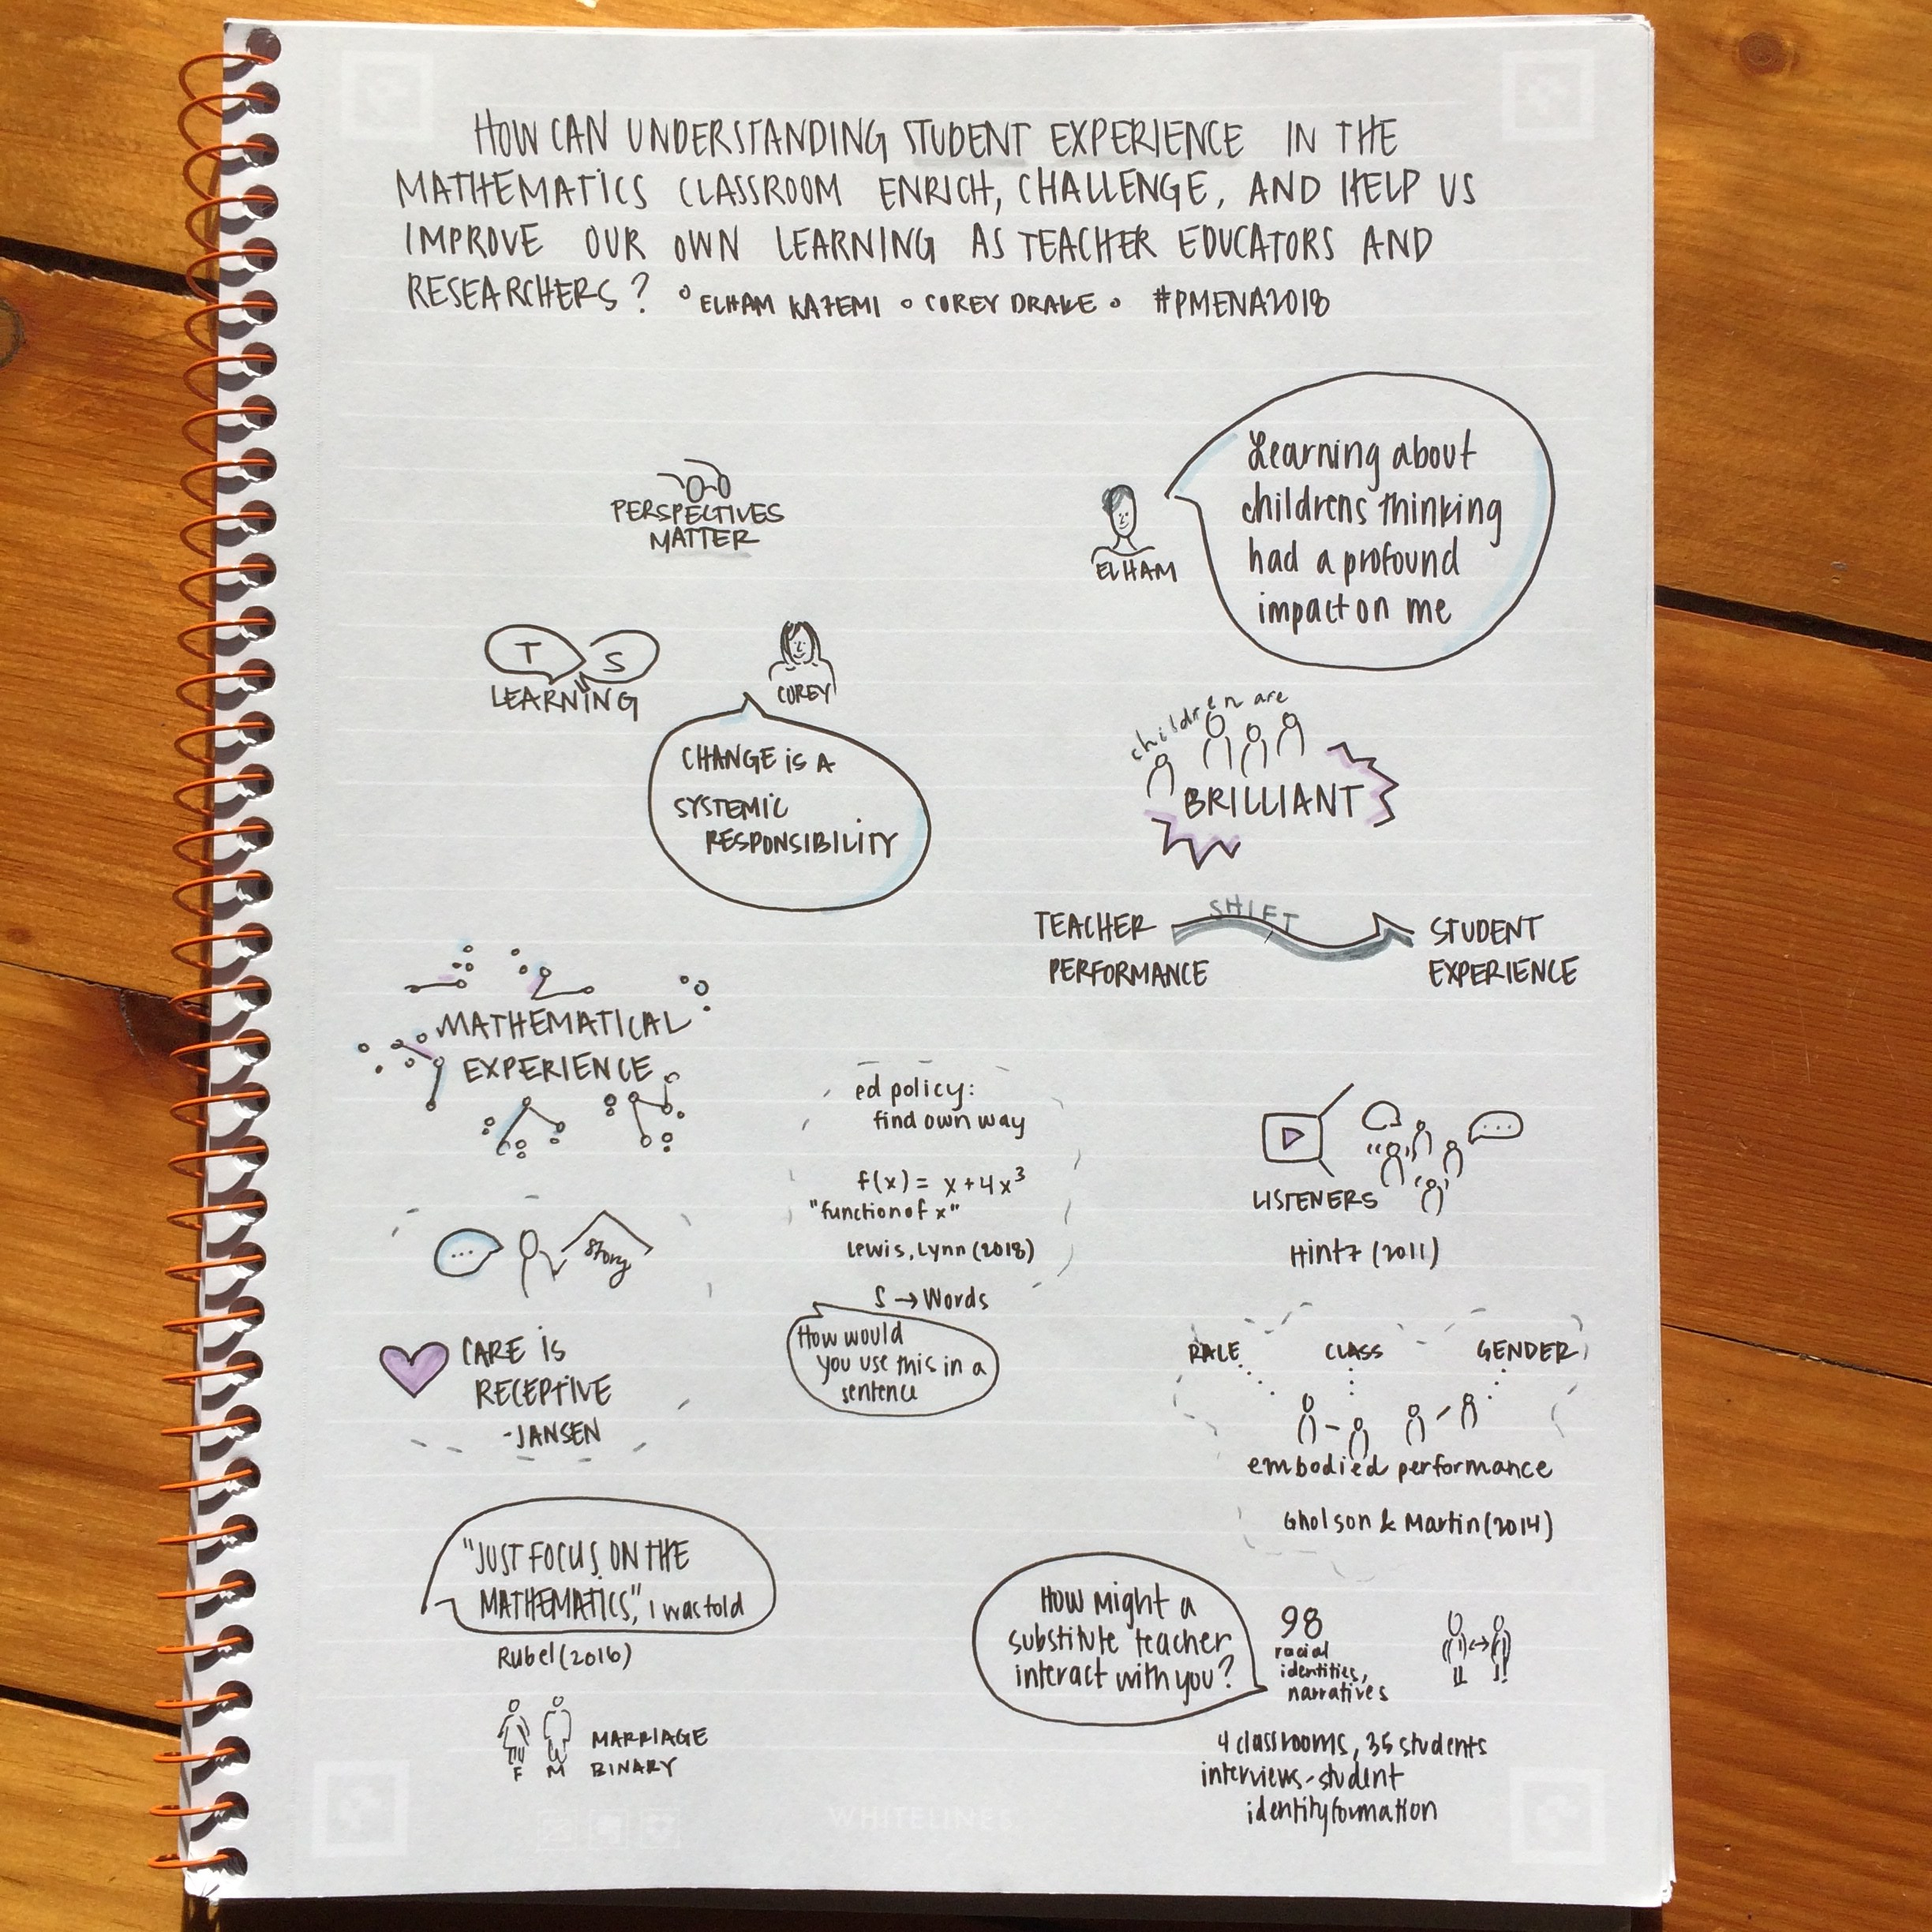 HOW CAN UNDERSTANDING STUDENT EXPERIENCE IN THE
MATHEMATICS CLASSROOM ENRICH, CHALLENGE, AND HELP US
IMPROVE OUR OWN LEARNING AS TEACHER EDUCATORS AND
RESEARCHERS? ° ELHAM KAZEMI ° COREY DRAKE ° #PMENA2018
PERSPECTIVES
MATTER
ELHAM
Learning about
childrens thinking
had a profound
impact on me
T S
LEARNING
COREY
CHANGE IS A
SYSTEMIC
RESPONSIBILITY
children are
BRILLIANT
SHIFT
TEACHER
PERFORMANCE
STUDENT
EXPERIENCE
MATHEMATICAL
EXPERIENCE
ed policy:
find own way
f(x) = x+4x³
"function of x"
Lewis, Lynn (2018)
S → Words
How would
you use this in a
sentence
LISTENERS
...
Hintz (2011)
...
story
CARE IS
RECEPTIVE
-JANSEN
RACE CLASS GENDER
embodied performance
Gholson & Martin (2014)
"JUST FOCUS ON THE
MATHEMATICS," I was told
Rubel (2016)
F M
MARRIAGE
BINARY
How might a
substitute teacher
interact with you?
98
racial
identities,
narratives
4 classrooms, 35 students
interviews-student
identity formation
WHITELINES